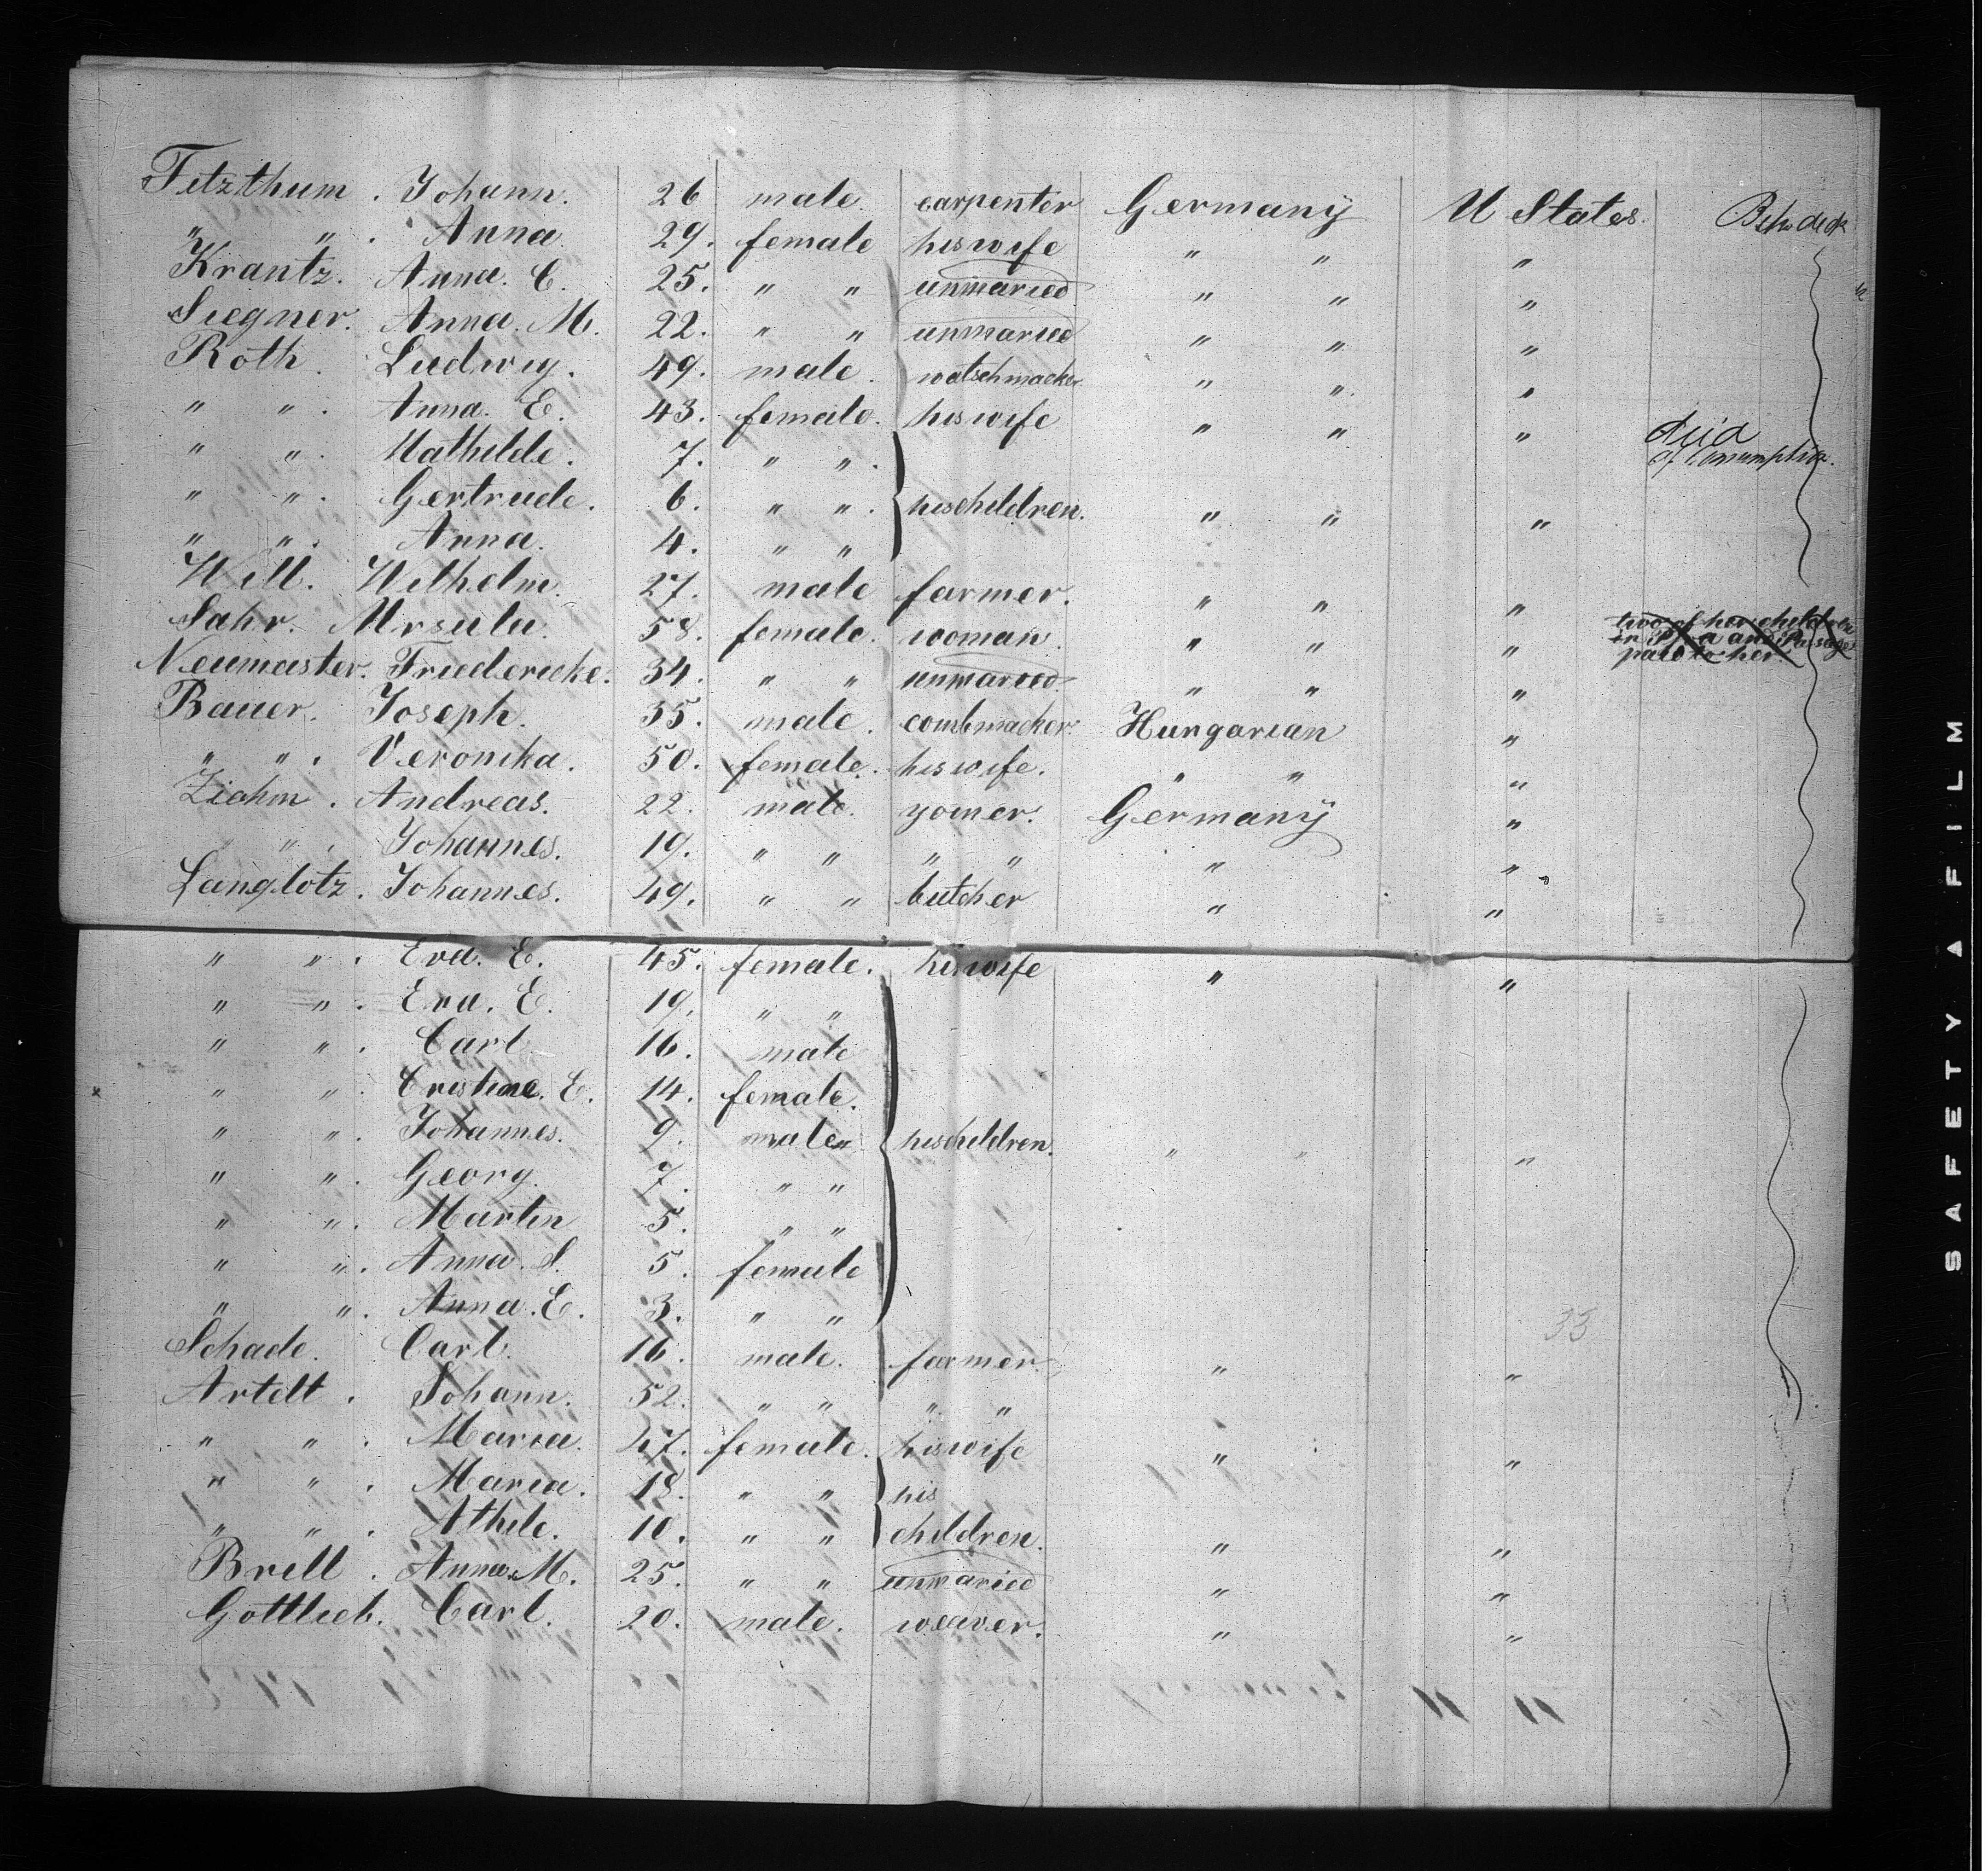 Fetzthum. Johann. 26 male. carpenter Germany U States. Betw deck
" " . Anna. 29. female his wife " " "
Krantz. Anna. C. 25. " " unmaried " " "
Siegner. Anna. M. 22. " " unmaried " " "
Roth. Ludwig. 49. male. watschmacker " " "
" " . Anna. E. 43. female. his wife " " " died
of Consumption.
" " . Mathilde. 7. " " .
" " . Gertrude. 6. " " . his children. " " "
" " . Anna. 4. " "
Will. Wilhelm. 27. male farmer. " " "
Sahr. Ursula. 58. female. woman. " " " two of her children
in and Passage
paid to her.
Neumaster. Friedericke. 34. " " unmaried. " " "
Bauer. Joseph. 35. male. combmacker. Hungarian "
" " . Veronika. 50. female. his wife. " " "
Ziehm. Andreas. 22. male. yoiner. Germany "
" " . Johannes. 19. " " " " " "
Langlotz. Johannes. 49. " " butcher " "
" " . Eva. E. 45. female. his wife " "
" " . Eva. E. 19. " "
" " . Carl 16. male
" " . Cristine. E. 14. female.
" " . Johannes. 9. male his children. " " "
" " . Georg. 7. " "
" " . Martin 5. " "
" " . Anna. S. 5. female
" " . Anna. E. 3. " "
33
Schade. Carl. 16. male. farmer. " "
Artelt. Johann. 52. " " " "
" " . Maria. 47. female. his wife " "
" " . Maria. 18. " " his
" " . Athile. 10. " " children. " "
Brell. Anna. M. 25. " " unmaried " "
Gottlieb. Carl. 20. male. weaver. " "
SAFETY A FILM